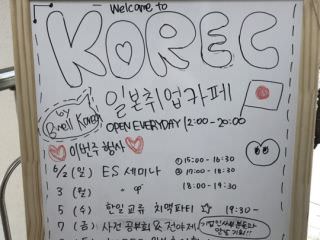 Welcome to
KOREC
by
일본취업카페
OPEN EVERYDAY 12:00-20:00
이번주 행사
6/2 (일) ES 세미나 ①15:00-16:30
②17:00-18:30
3 (월) " 18:00-19:30
5 (수) 한일교류 치맥파티 ☆ 19:30-
7 (금) 사전 공부회 & 전야제